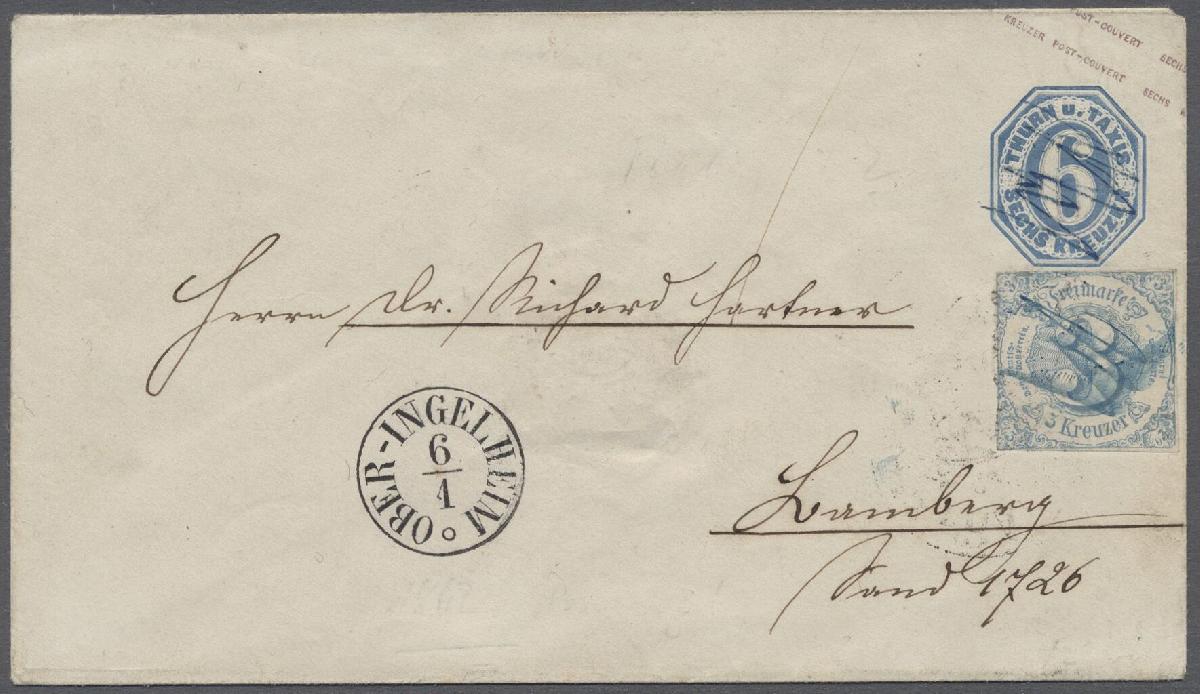 POST-COUVERT SECHS
KREUZER POST-COUVERT SECHS
THURN U. TAXIS
6
SECHS KREUZER
Freimarke
3 3
3 Kreuzer
Herrn Dr. Richard Hartner
OBER-INGELHEIM
6
1
Bamberg
Sand 1726